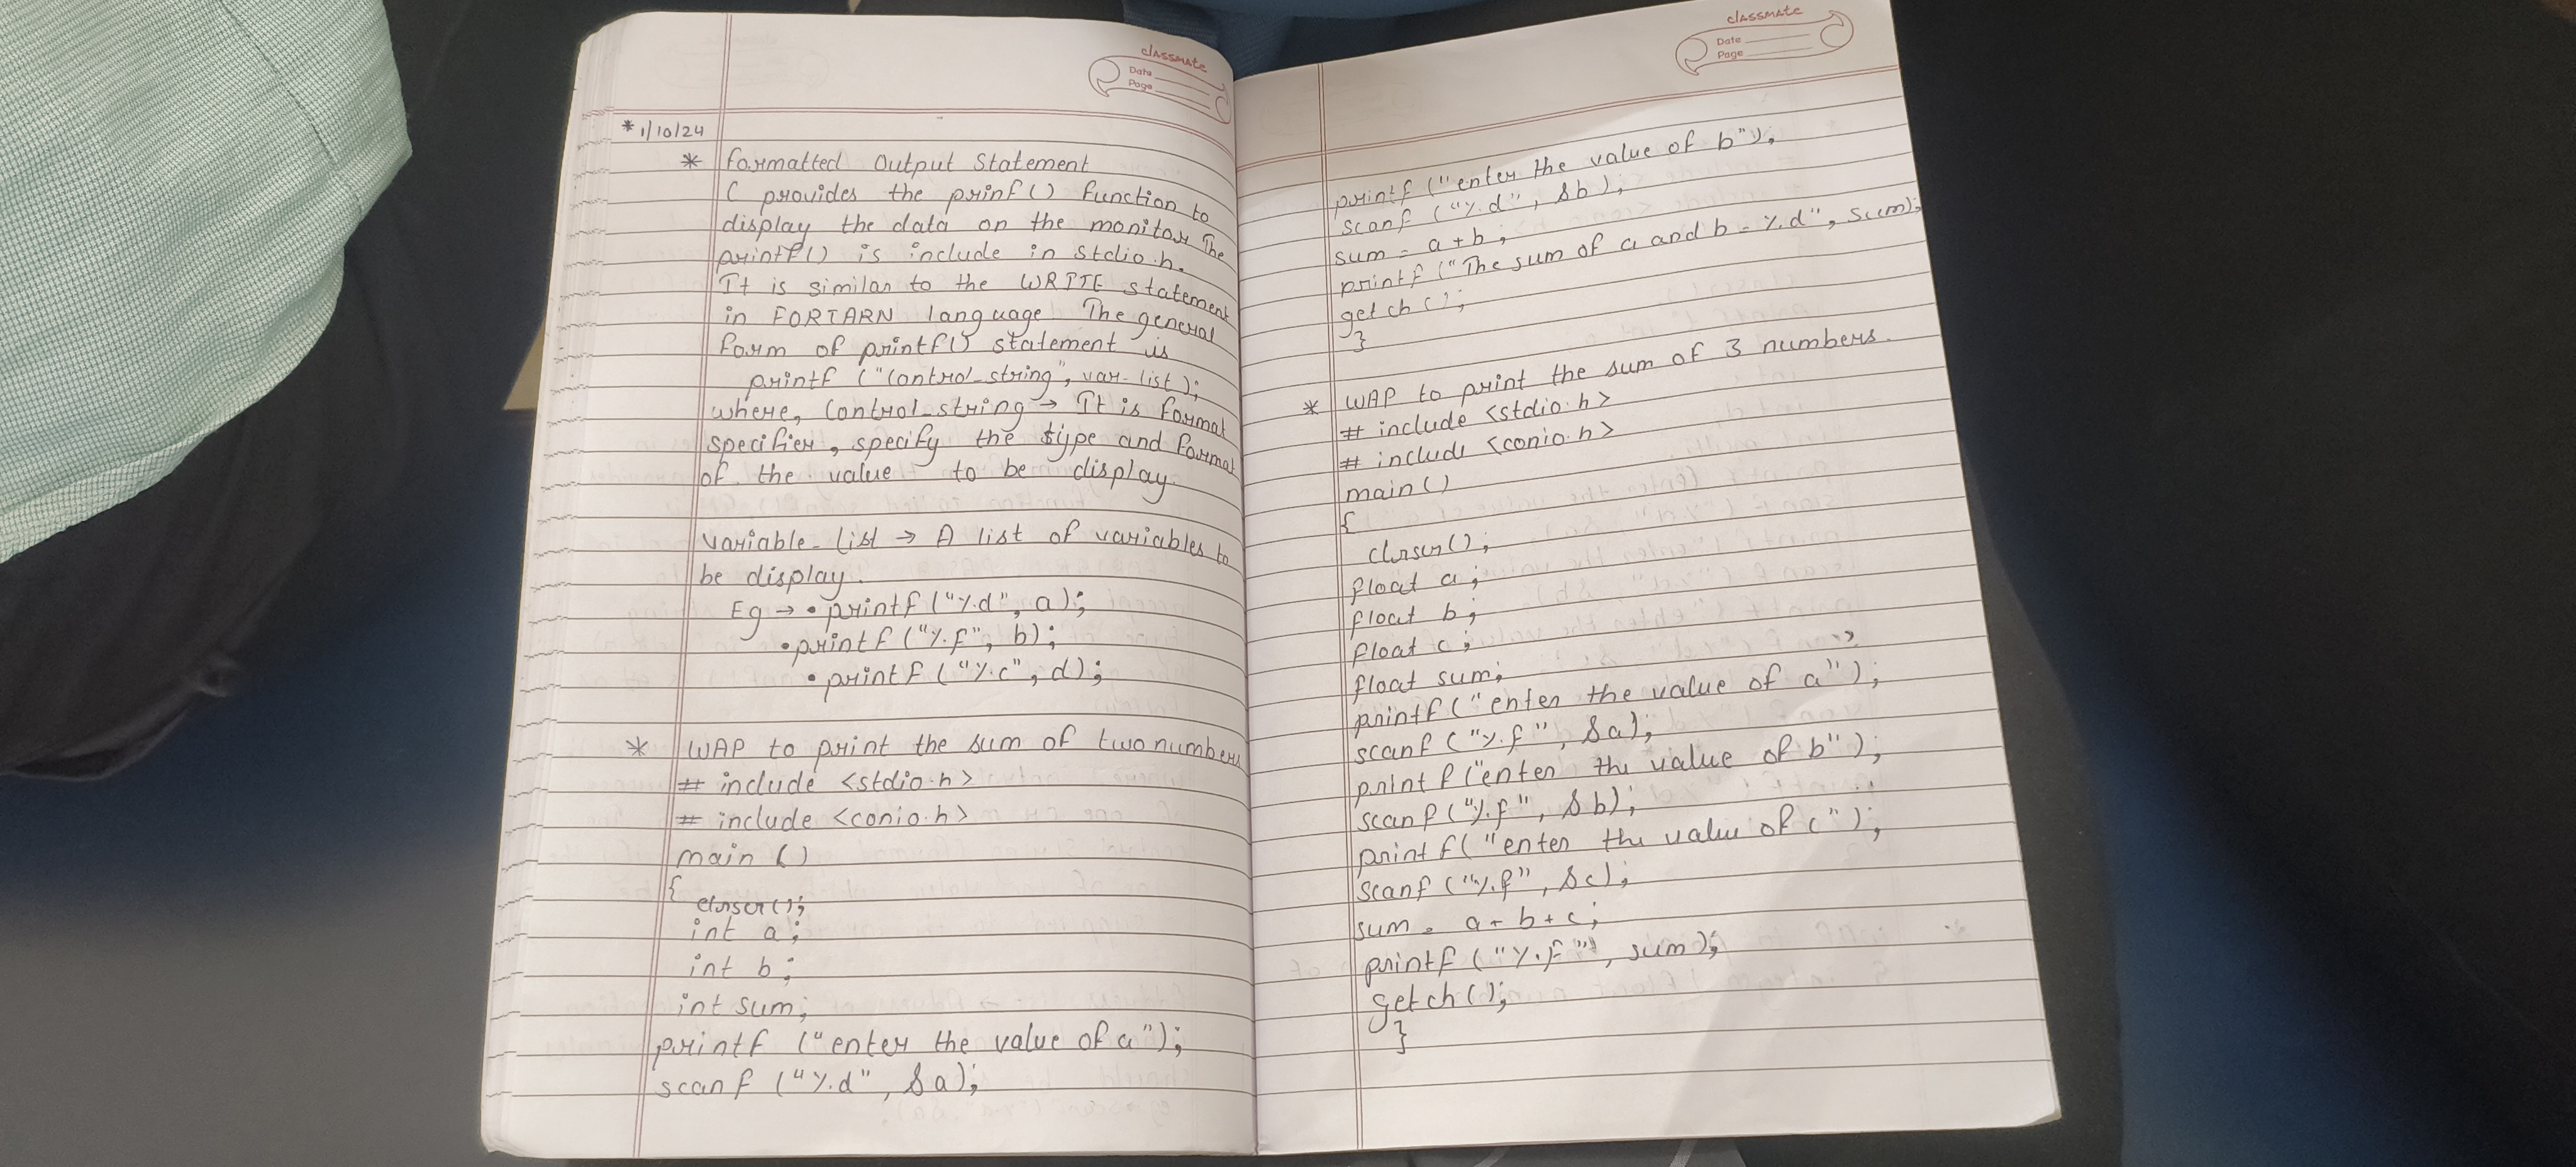 classmate
Date
Page
*1/10/24
* Formatted Output Statement
C provides the prinf() function to
display the data on the monitor. The
printf() is include in stdio.h.
It is similar to the WRITE statement
in FORTARN language. The general
form of printf() statement is
printf ("Control_string", var-list);
where, Control_string → It is Format
specifier, specify the type and Format
of the value to be display.
Variable_list → A list of variables to
be display.
Eg → • printf ("%d", a);
• printf ("%f", b);
• printf ("%c", d);
* WAP to print the sum of two numbers
# include <stdio.h>
# include <conio.h>
main ()
{
clrscr();
int a;
int b;
int sum;
printf ("enter the value of a");
scanf ("%d", &a);
classmate
Date
Page
printf ("enter the value of b");
scanf ("%d", &b);
sum = a+b;
printf ("The sum of a and b = %d", sum);
getch ();
}
* WAP to print the sum of 3 numbers.
# include <stdio.h>
# include <conio.h>
main ()
{
clrscr();
float a;
float b;
float c;
float sum;
printf ("enter the value of a");
scanf ("%f", &a);
printf ("enter the value of b");
scanf ("%f", &b);
printf ("enter the value of c");
scanf ("%f", &c);
sum = a+b+c;
printf ("%f", sum);
getch ();
}